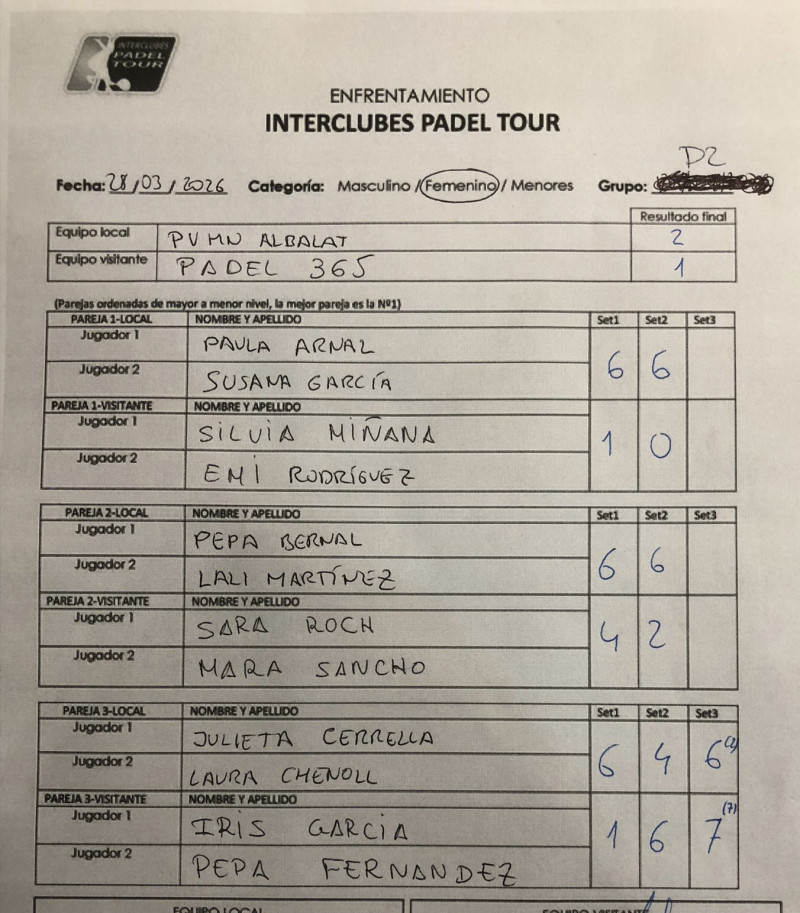 INTERCLUBES
PADEL
TOUR
ENFRENTAMIENTO
INTERCLUBES PADEL TOUR
D2
Fecha: 28/03/2026 Categoría: Masculino / Femenino / Menores Grupo:
Resultado final
Equipo local PVMN ALBALAT 2
Equipo visitante PADEL 365 1
(Parejas ordenadas de mayor a menor nivel, la mejor pareja es la Nº1)
PAREJA 1-LOCAL NOMBRE Y APELLIDO Set1 Set2 Set3
Jugador 1 PAULA ARNAL
6 6
Jugador 2 SUSANA GARCÍA
PAREJA 1-VISITANTE NOMBRE Y APELLIDO
Jugador 1 SILVIA MIÑANA
1 0
Jugador 2 EMI RODRÍGUEZ
PAREJA 2-LOCAL NOMBRE Y APELLIDO Set1 Set2 Set3
Jugador 1 PEPA BERNAL
6 6
Jugador 2 LALI MARTÍNEZ
PAREJA 2-VISITANTE NOMBRE Y APELLIDO
Jugador 1 SARA ROCH
4 2
Jugador 2 MARA SANCHO
PAREJA 3-LOCAL NOMBRE Y APELLIDO Set1 Set2 Set3
Jugador 1 JULIETA CERRELLA
6 4 6
Jugador 2 LAURA CHENOLL
PAREJA 3-VISITANTE NOMBRE Y APELLIDO
Jugador 1 IRIS GARCIA
1 6 7 (7)
Jugador 2 PEPA FERNANDEZ
EQUIPO LOCAL EQUIPO VISITANTE